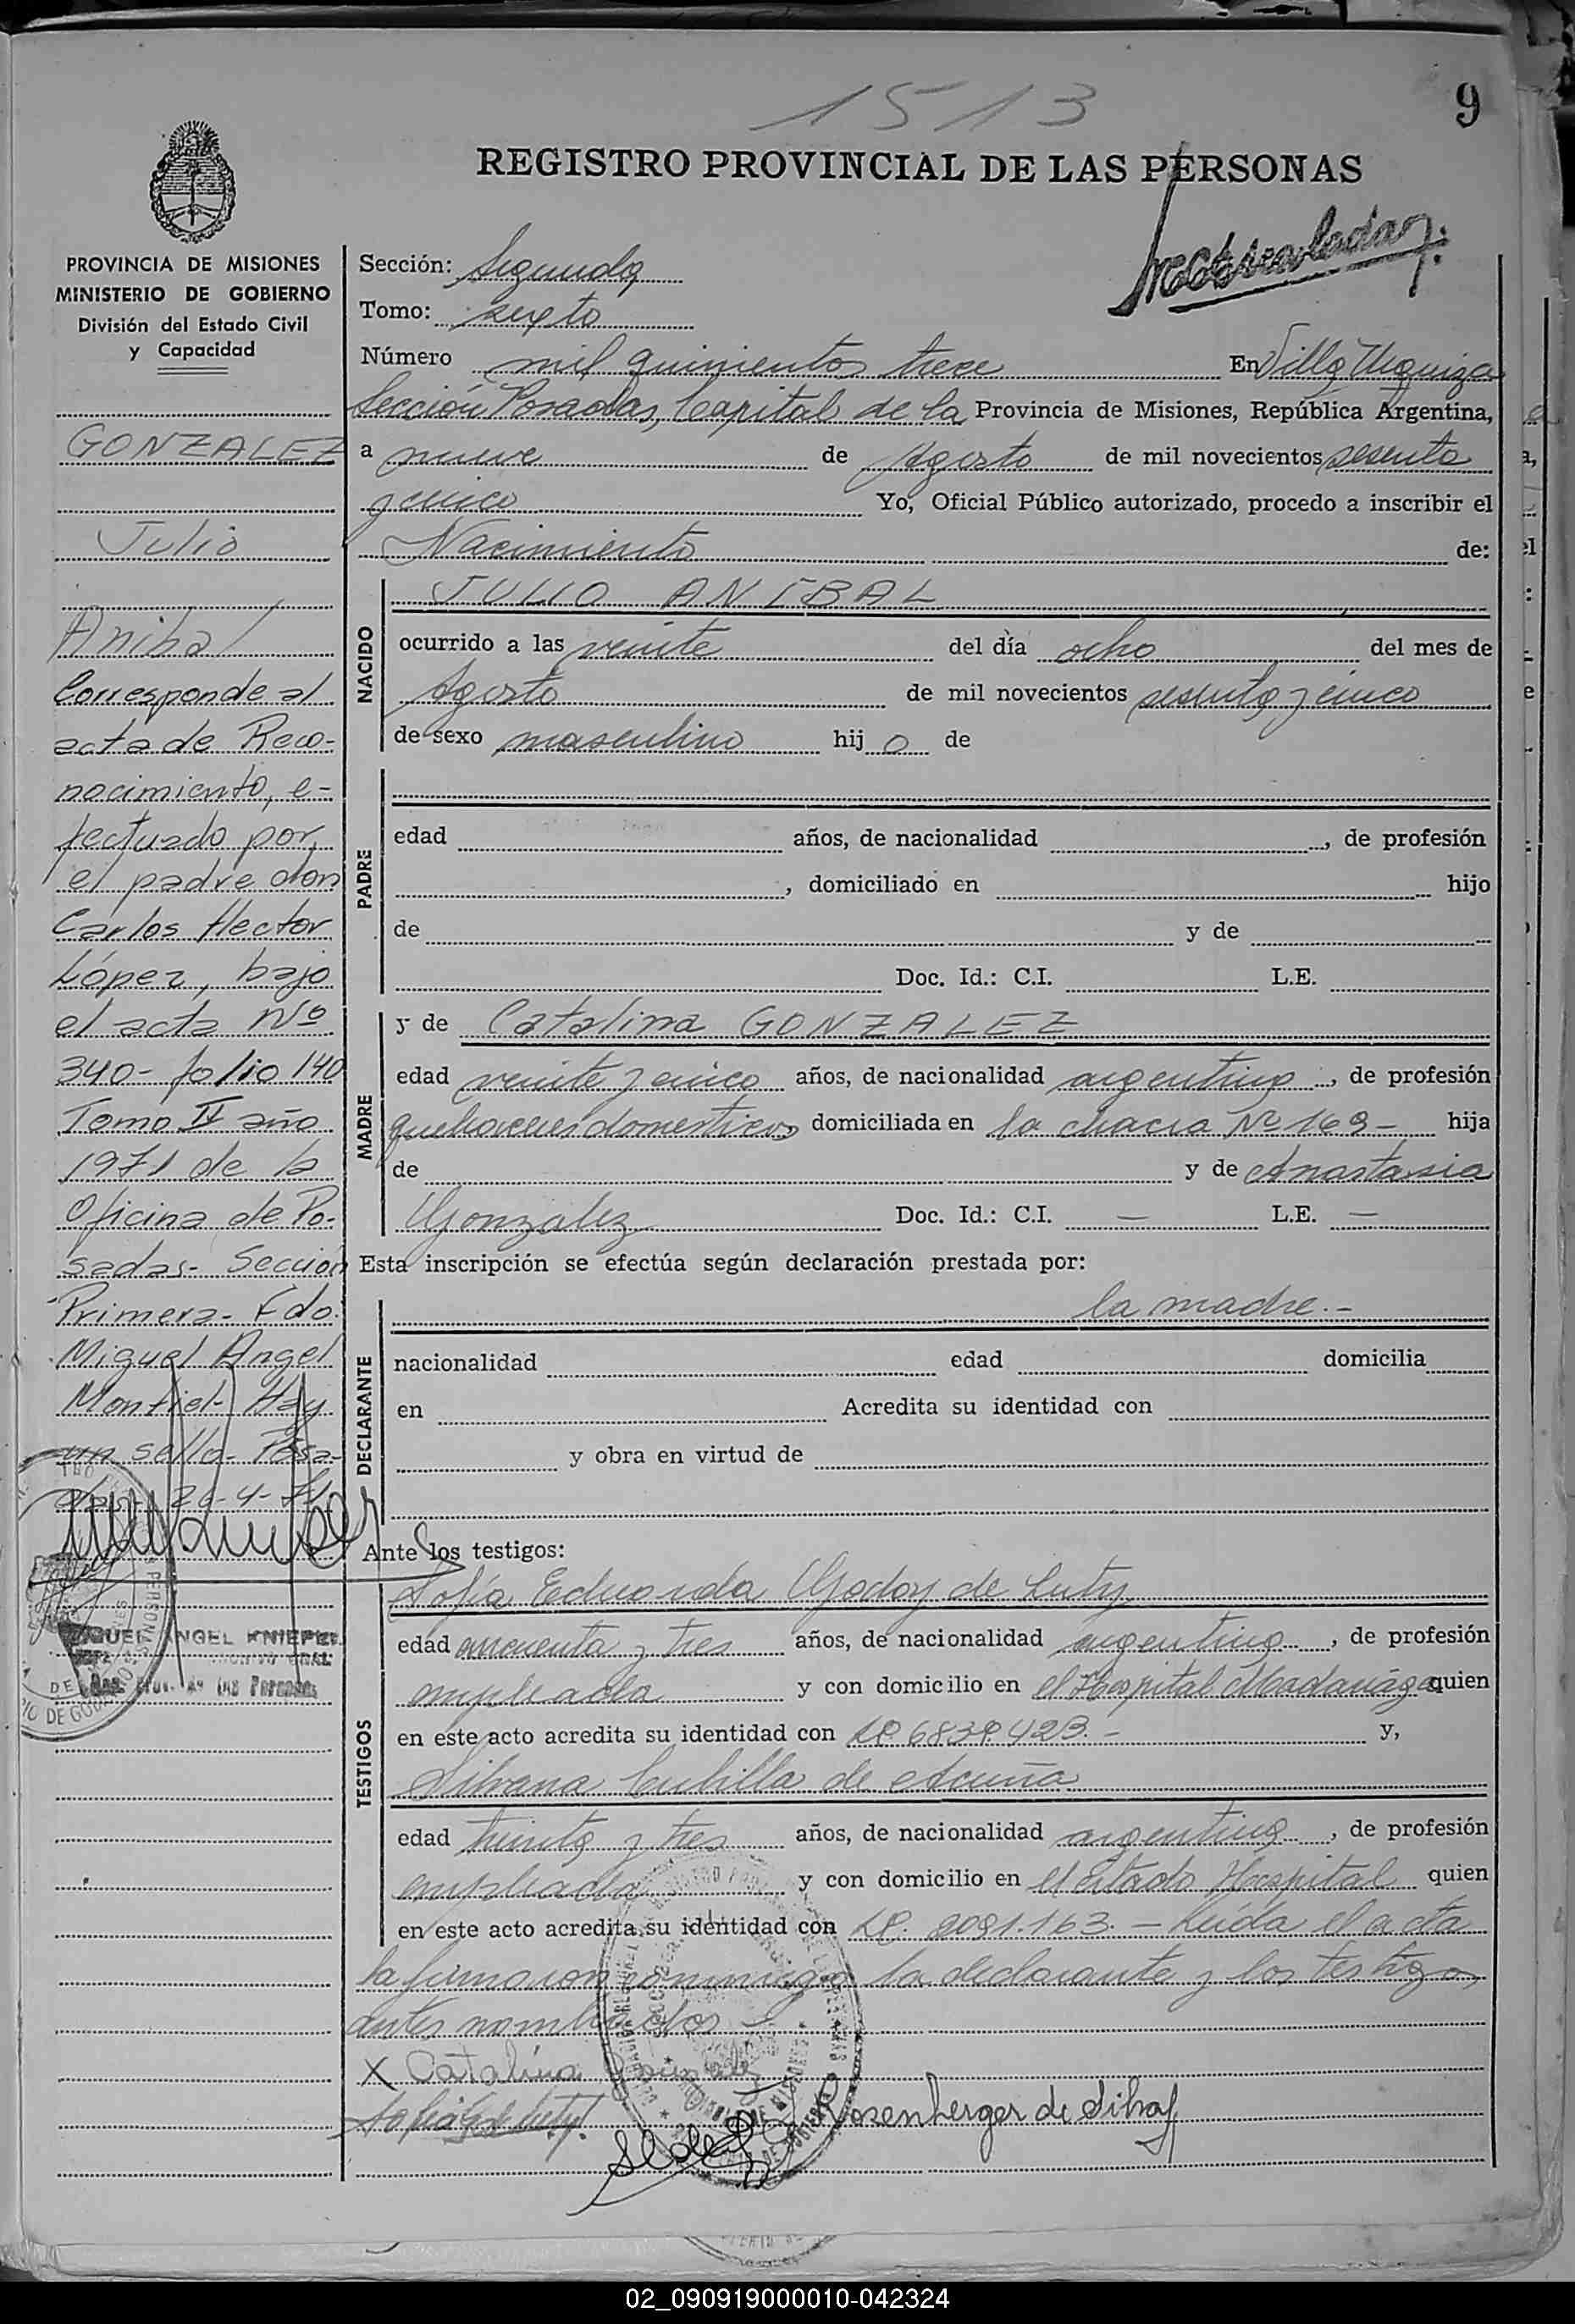 1513
9
REGISTRO PROVINCIAL DE LAS PERSONAS
PROVINCIA DE MISIONES
MINISTERIO DE GOBIERNO
División del Estado Civil
y Capacidad
GONZALEZ
Julio
Anibal
Corresponde al
acta de Reco-
nocimiento, e-
fectuado por
el padre don
Carlos Hector
López, bajo
el acta Nº
340- folio 140
Tomo II año
1971 de la
Oficina de Po-
sadas- Seccion
Primera- Fdo.
Miguel Angel
Montiel- Hay
un sello- Posa-
26-4-71
Sección: Segunda
Tomo: sexto
Número mil quinientos trece En Villa Urquiza
Sección Posadas, Capital de la Provincia de Misiones, República Argentina,
a nueve de Agosto de mil novecientos sesenta
y cinco Yo, Oficial Público autorizado, procedo a inscribir el
Nacimiento de:
NACIDO
JULIO ANIBAL
ocurrido a las veinte del día ocho del mes de
Agosto de mil novecientos sesenta y cinco
de sexo masculino hijo de
PADRE
edad años, de nacionalidad , de profesión
, domiciliado en hijo
de y de
Doc. Id.: C.I. L.E.
MADRE
y de Catalina GONZALEZ
edad veinte y cinco años, de nacionalidad argentina, de profesión
quehaceres domesticos domiciliada en la chacra Nº 169- hija
de y de Anastasia
Gonzalez Doc. Id.: C.I. — L.E. —
Esta inscripción se efectúa según declaración prestada por:
DECLARANTE
la madre.-
nacionalidad edad domicilia
en Acredita su identidad con
y obra en virtud de
Ante los testigos:
TESTIGOS
Sofía Eduarda Godoy de Luty
edad cincuenta y tres años, de nacionalidad argentina, de profesión
empleada y con domicilio en el Hospital Madariaga quien
en este acto acredita su identidad con 423.- y,
Silvana Cubilla de Acuña
edad treinta y tres años, de nacionalidad argentina, de profesión
empleada y con domicilio en el citado Hospital quien
en este acto acredita su identidad con 163.- Leída el acta
la firmaron conmigo la declarante y los testigos
antes nombrados
X Catalina Gonzalez
Rosenberger de Silva
02_090919000010-042324